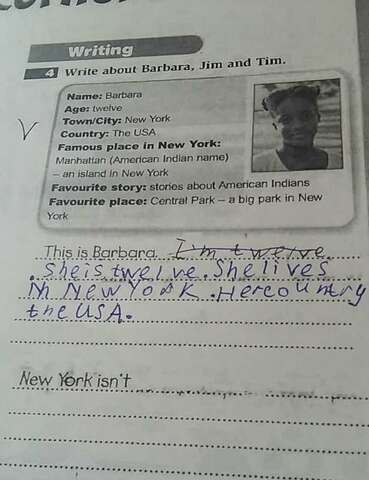 Writing
4 Write about Barbara, Jim and Tim.
Name: Barbara
Age: twelve
Town/City: New York
Country: The USA
Famous place in New York:
Manhattan (American Indian name)
– an island in New York
Favourite story: stories about American Indians
Favourite place: Central Park – a big park in New
York
V
This is Barbara. I'm twelve
. She is twelve. She lives
in New York. Her country
the USA.
New York isn't